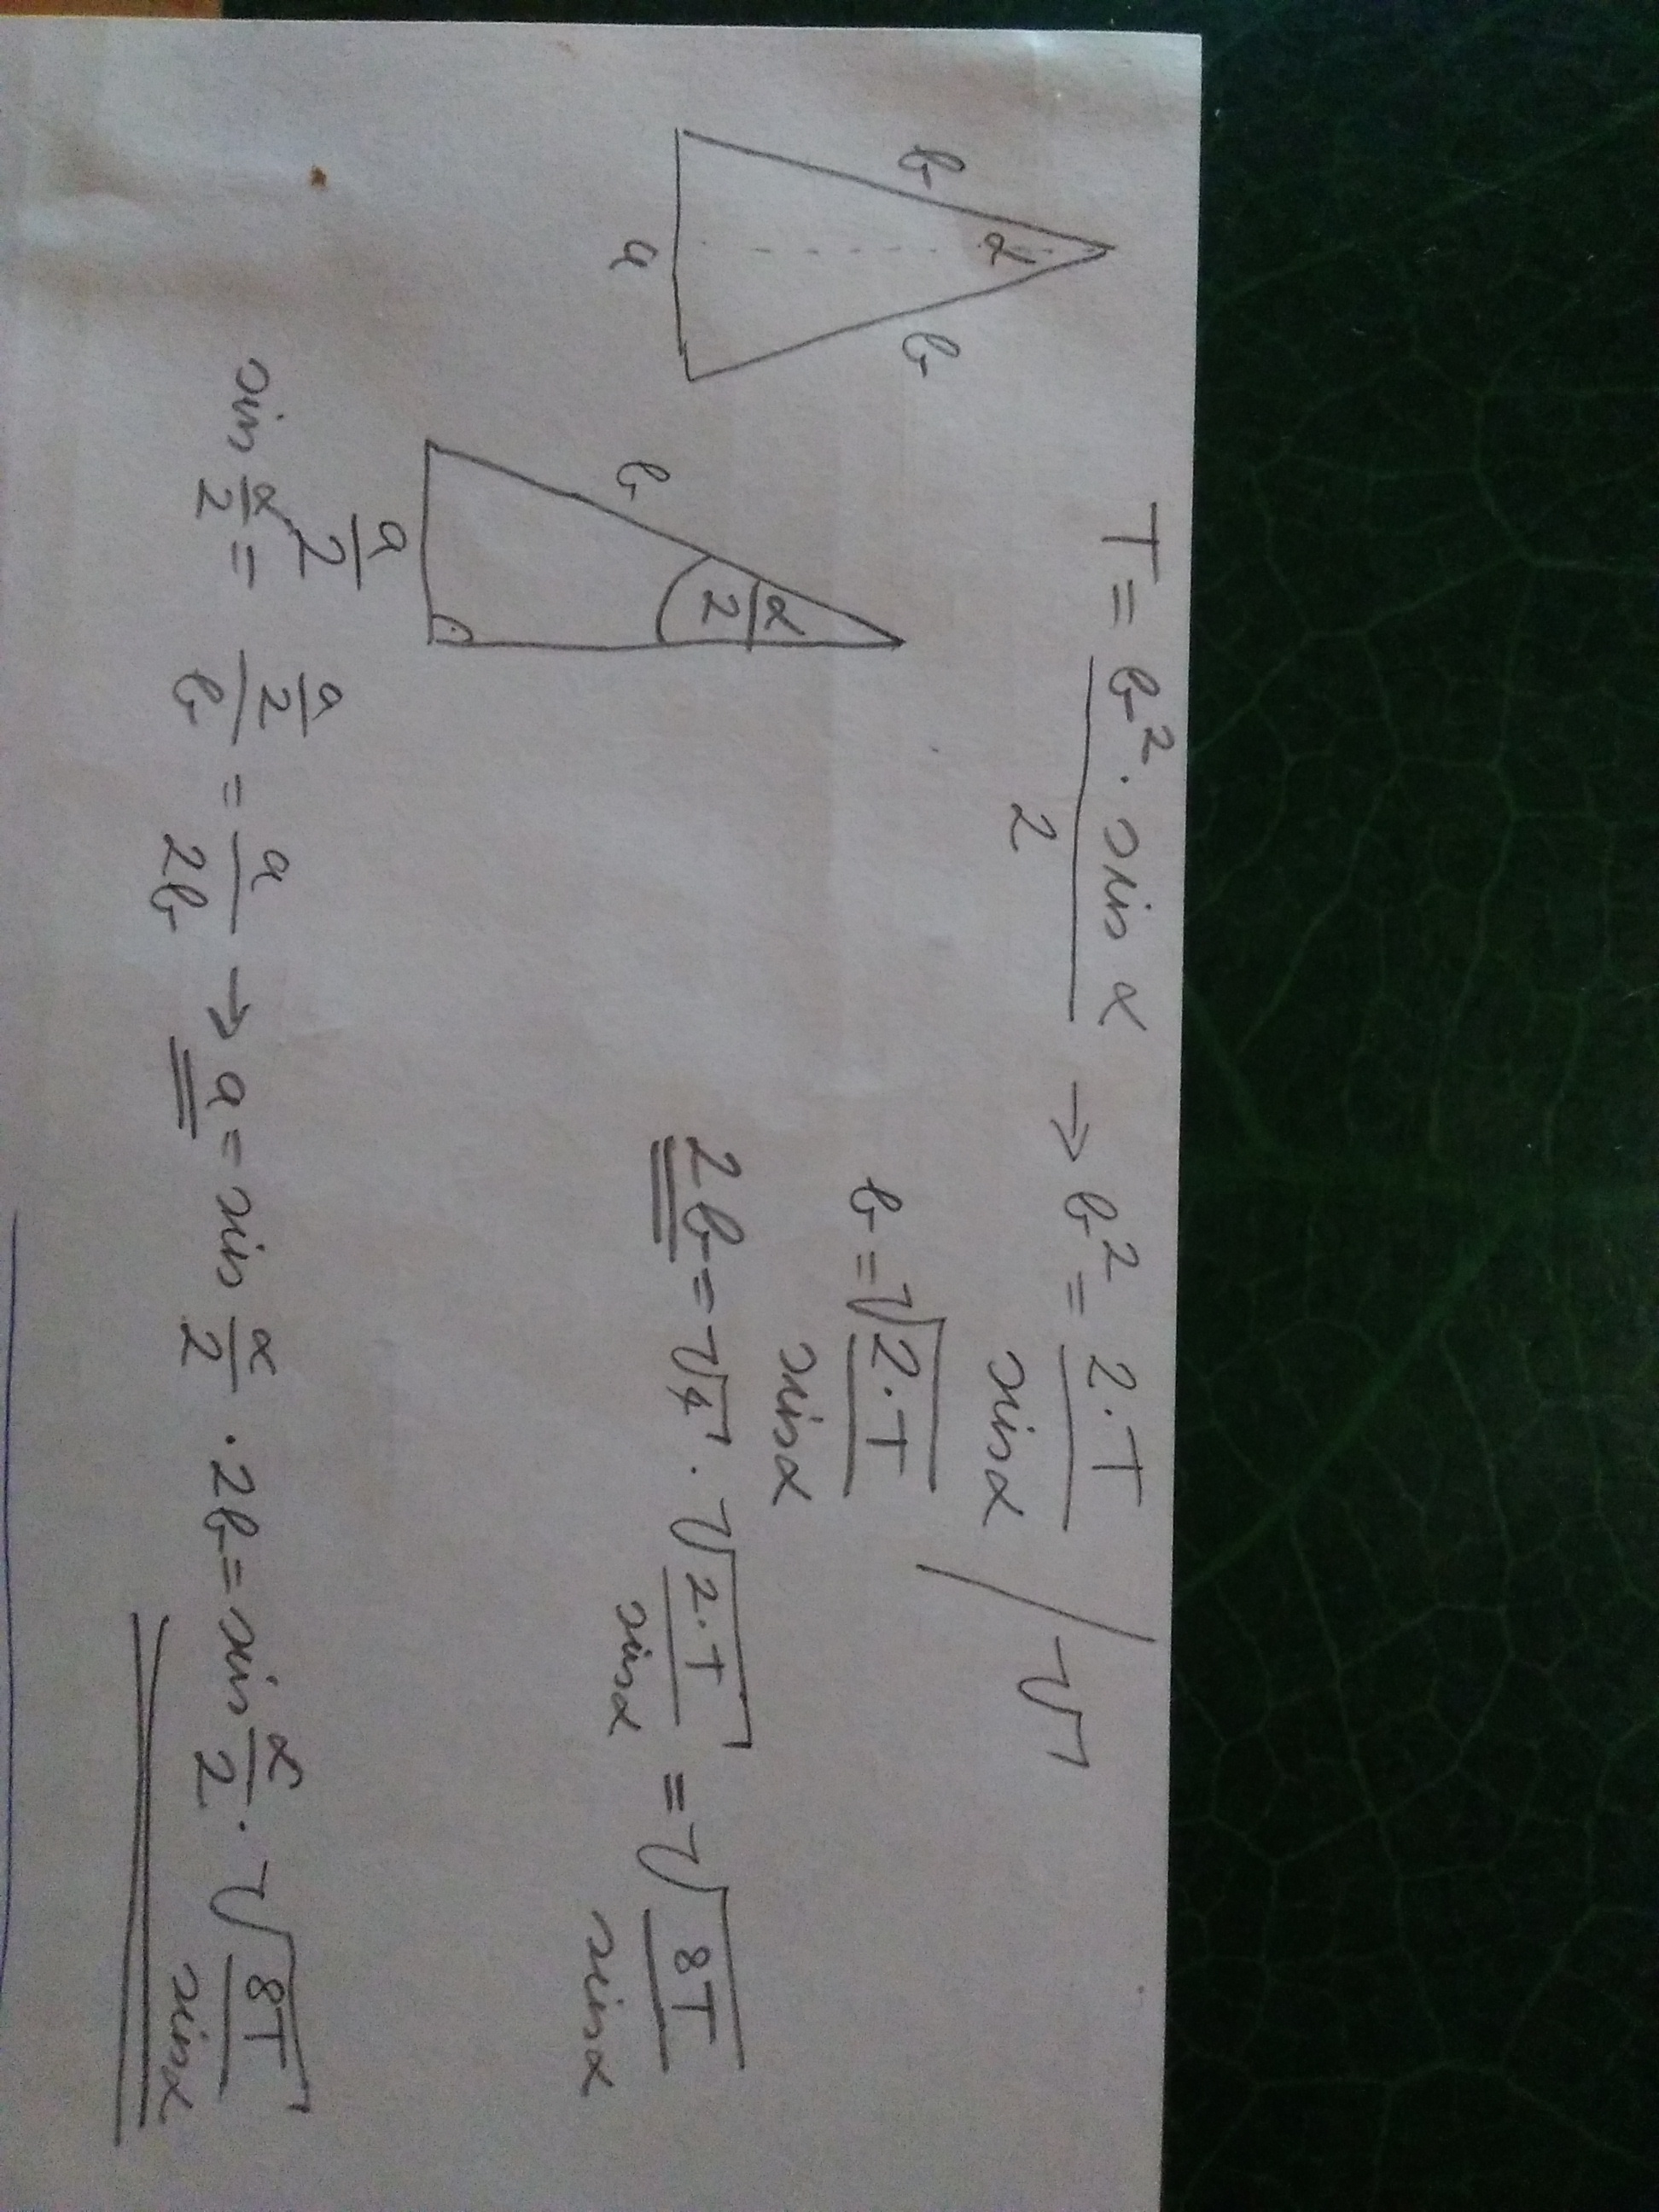 T = b² · sin α / 2 → b² = 2·T / sin α / √
b = √(2·T / sin α)
b b α
a
2b = √4 · √(2·T / sin α) = √(8T / sin α)
b α/2
a/2
sin α/2 = (a/2) / b = a / 2b → a = sin α/2 · 2b = sin α/2 · √(8T / sin α)